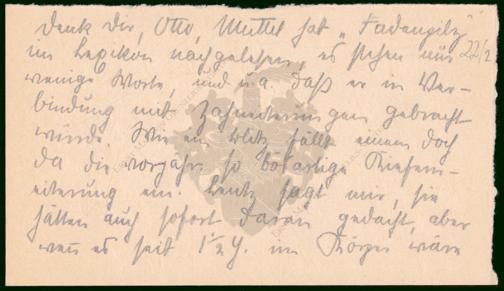 Denk Dir, Otto, Muttel hat „Fadenpilz"
im Lexikon nachgelesen, es stehen nur 22/2
wenige Worte, und u. a. daß er in Ver-
bindung mit Zahneiterungen gebracht
würde. Wie ein Blitz fällt einem doch
da die vorjähr. so bösartige Kiefern-
eiterung ein. Lentz sagt mir, sie
hätten auch sofort daran gedacht, aber
wenn es seit 1½ J. im Körper wäre